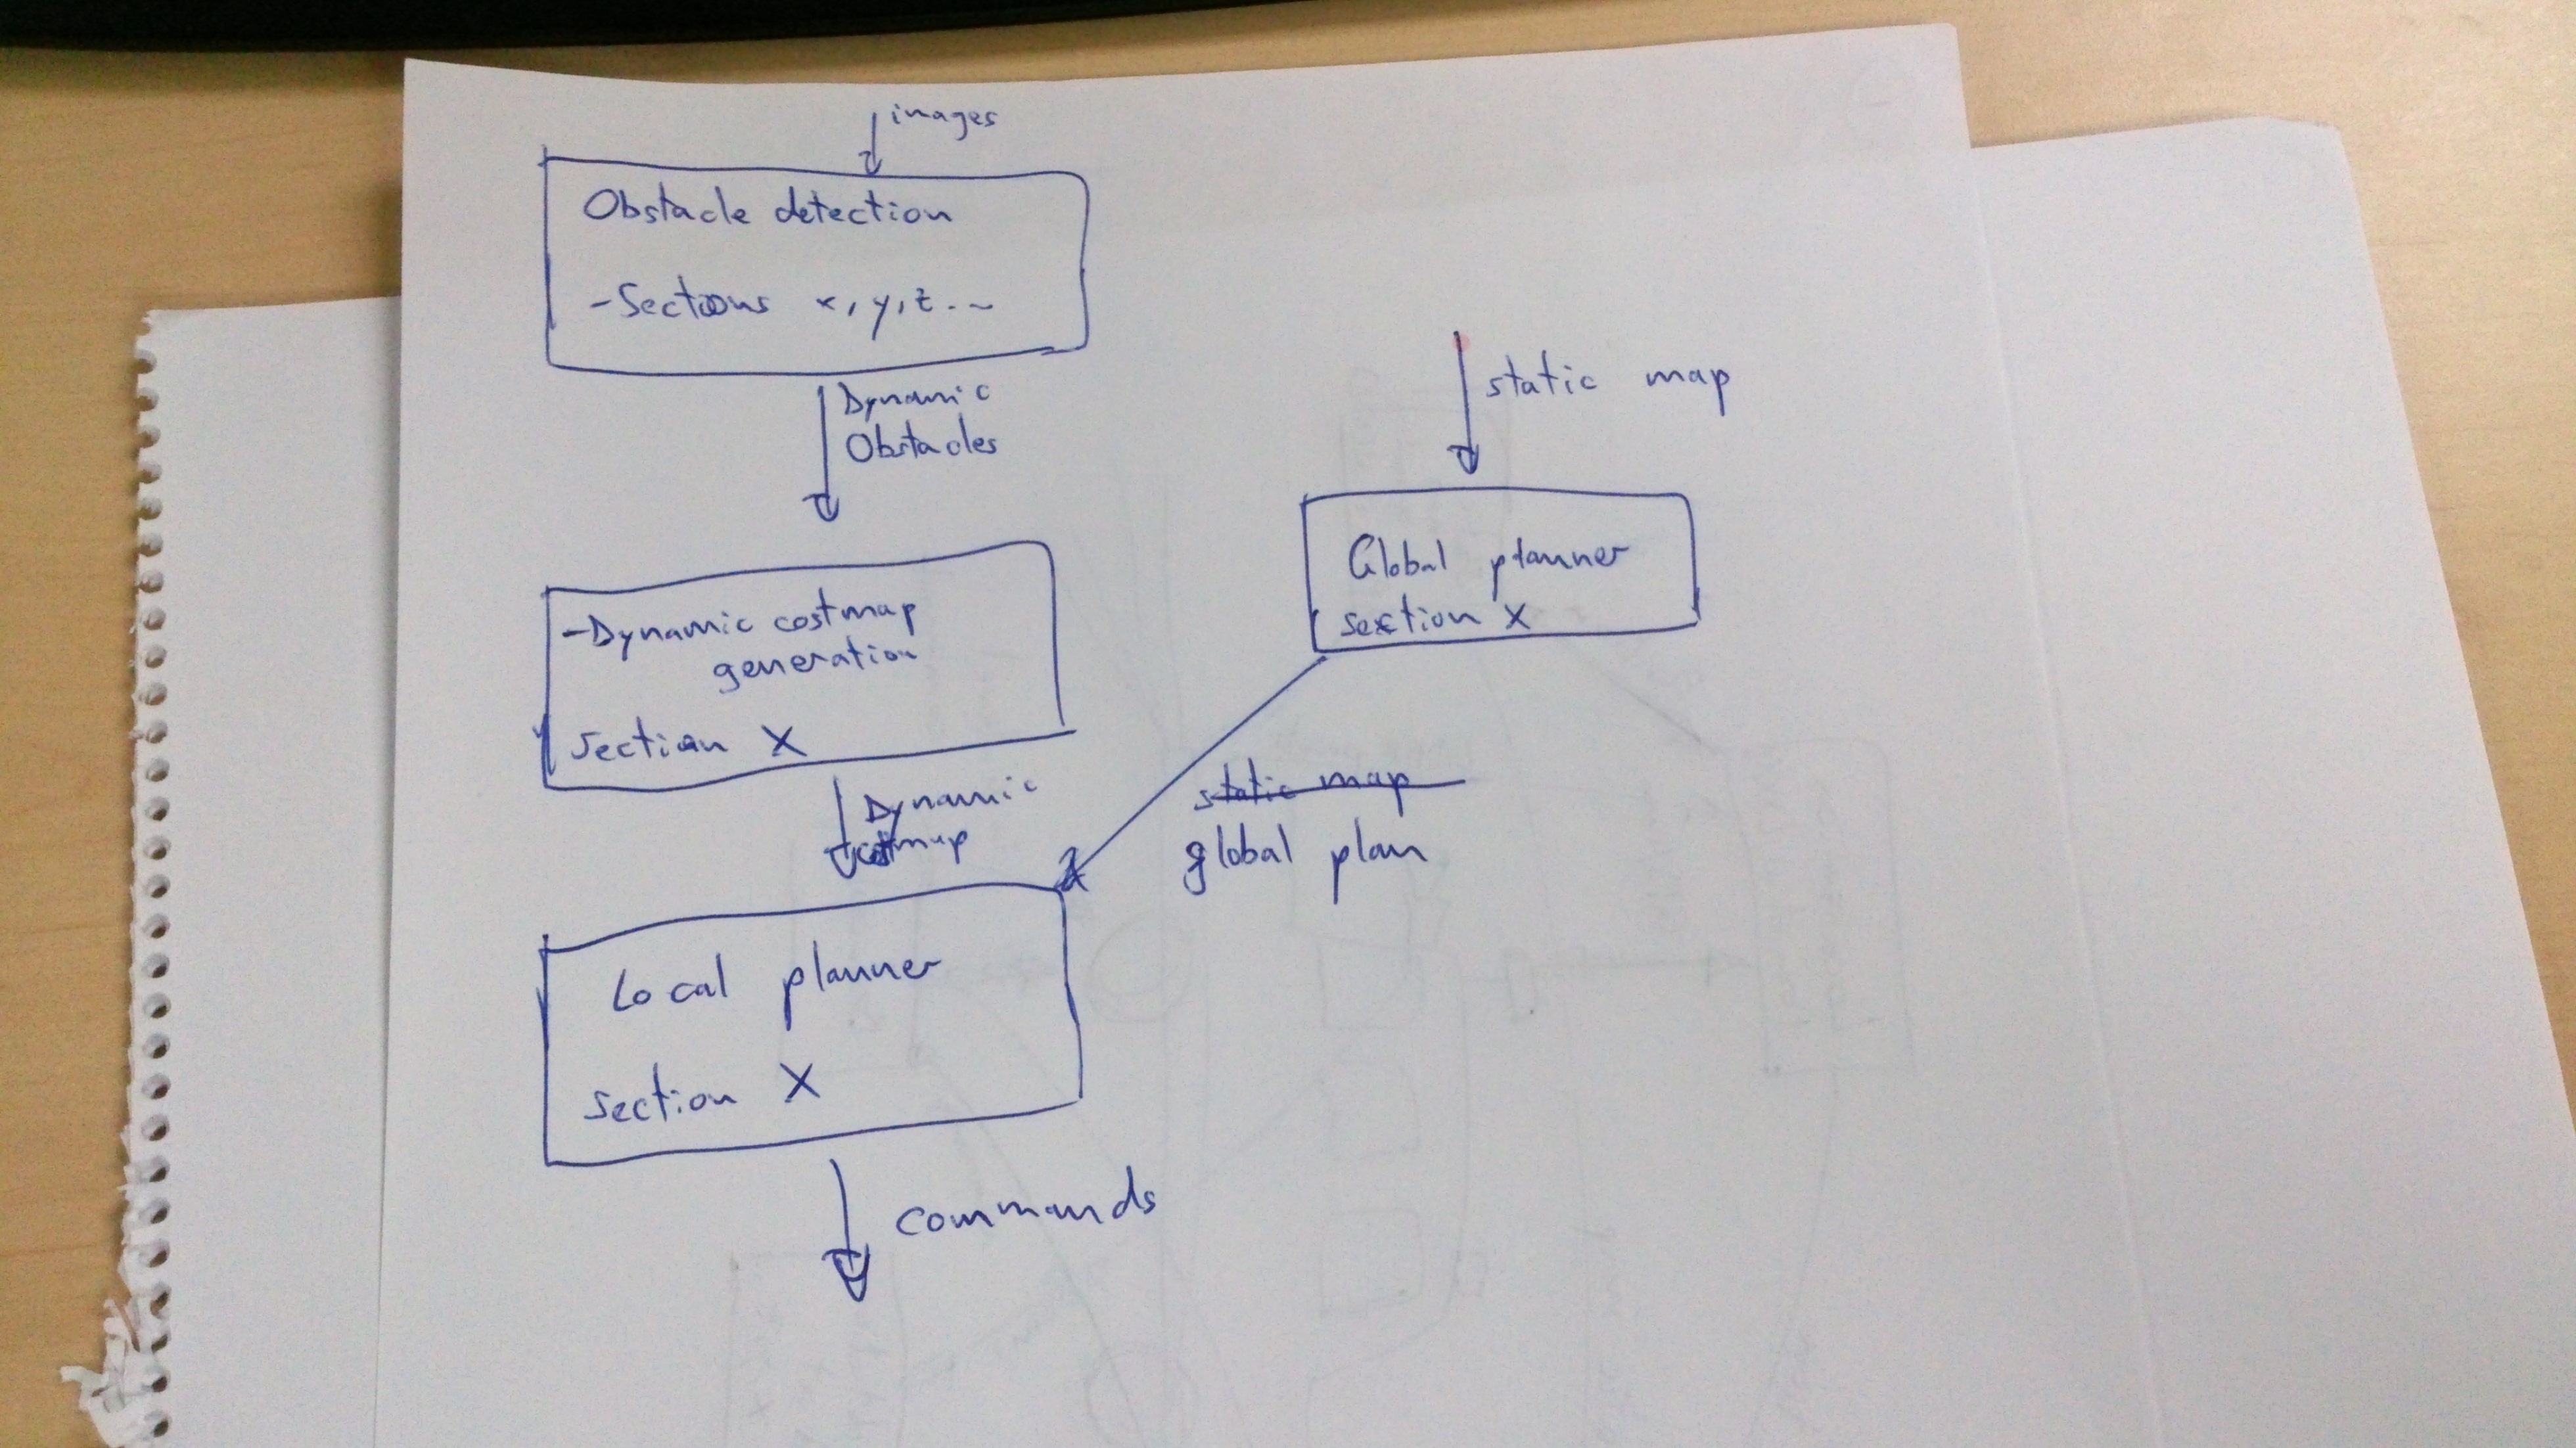 images
Obstacle detection
-Sections x, y, z.~
Dynamic
Obstacles
-Dynamic costmap
generation
Section X
Dynamic
costmap
Local planner
Section X
Commands
static map
Global planner
section X
static map
global plan